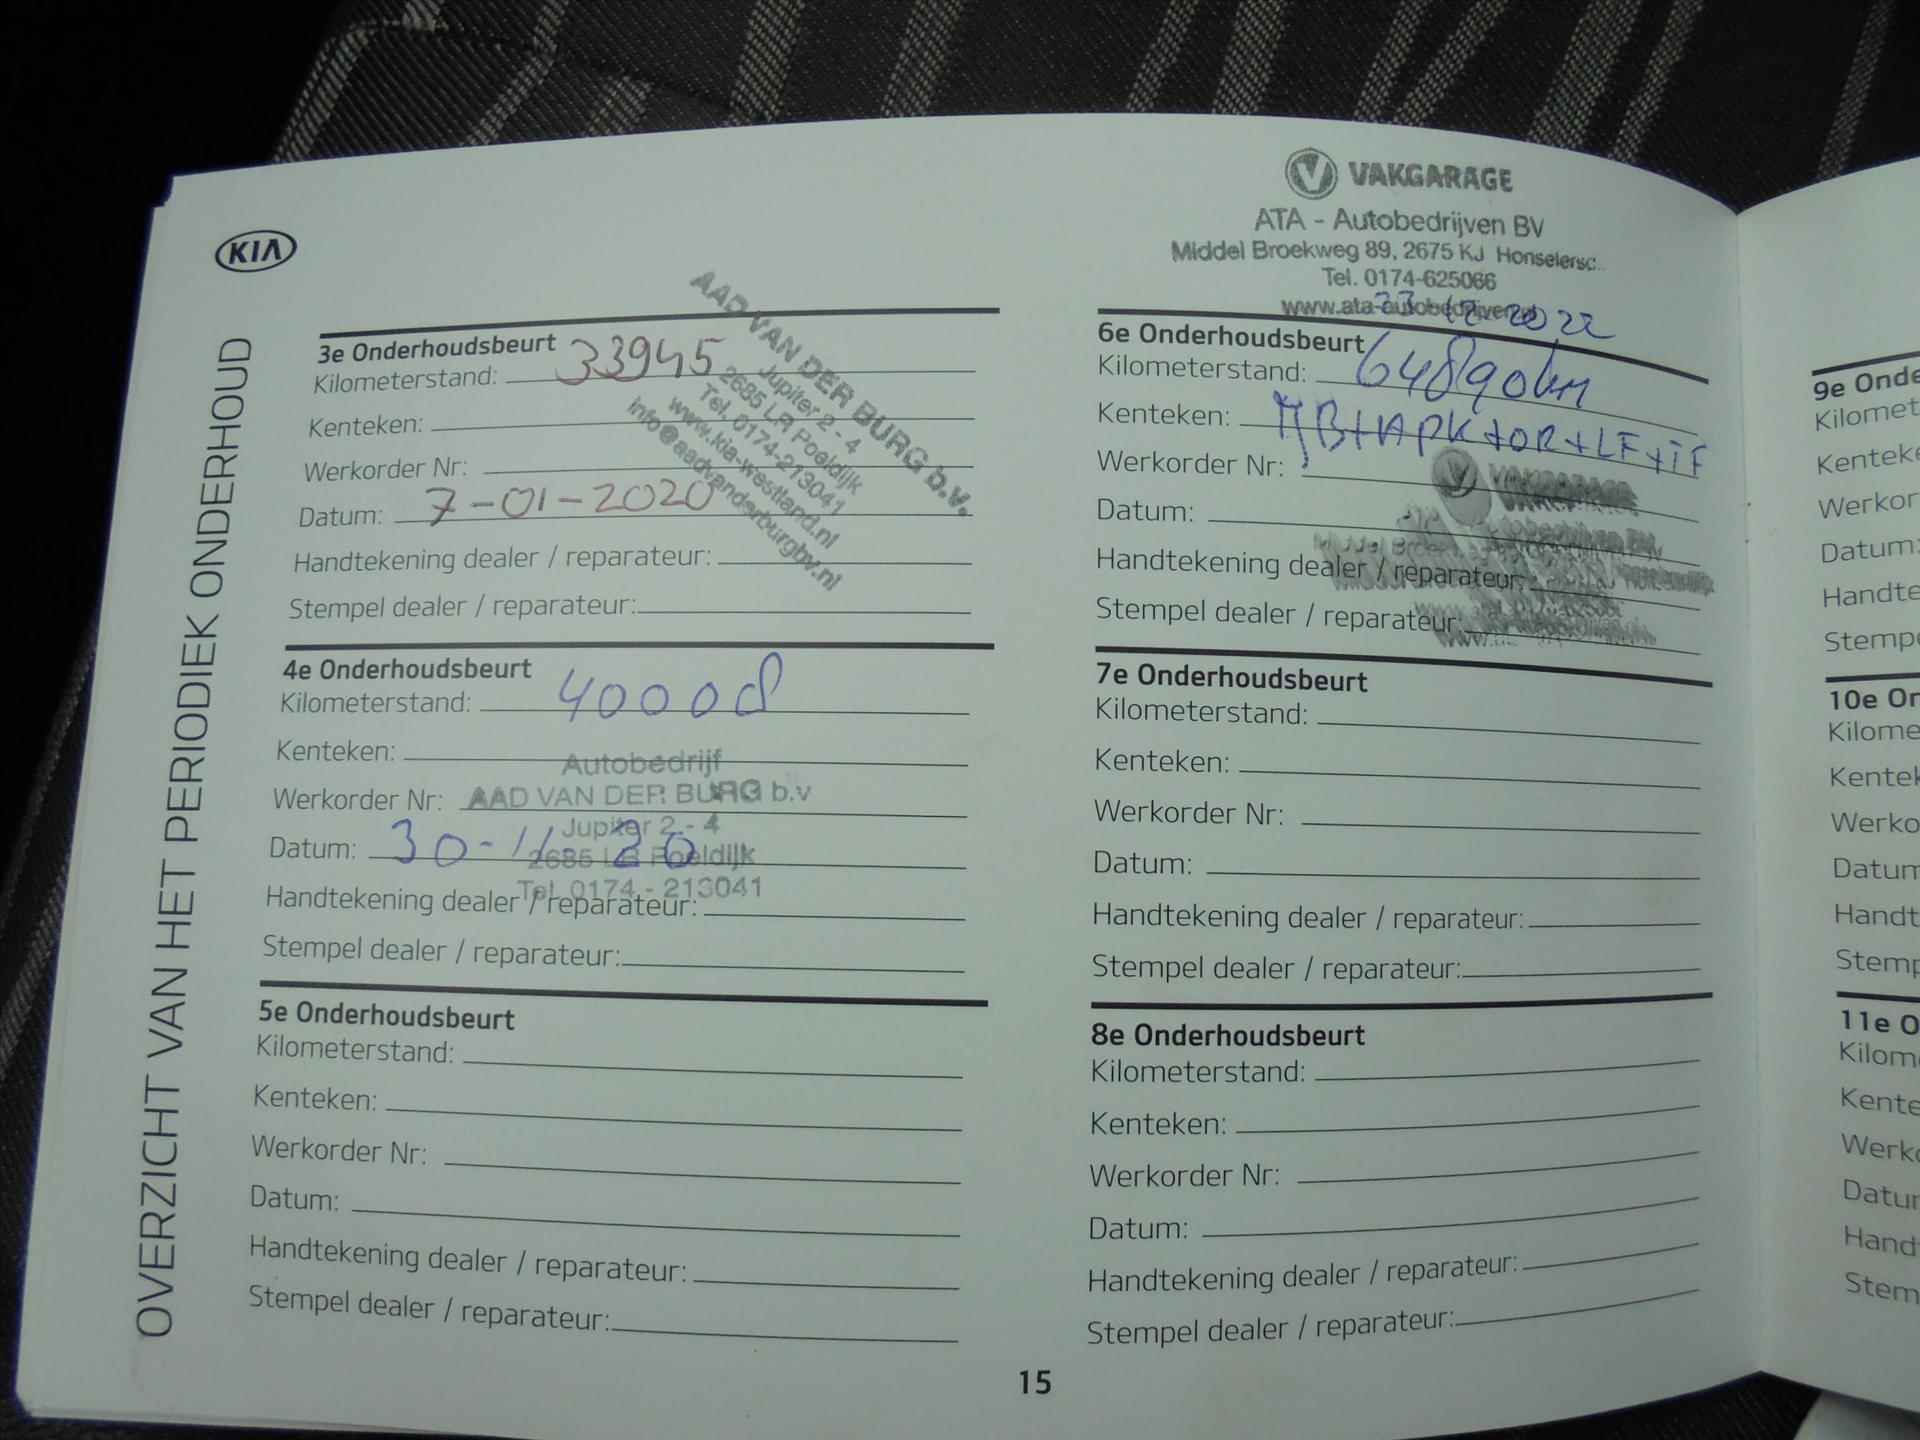 KIA
OVERZICHT VAN HET PERIODIEK ONDERHOUD
3e Onderhoudsbeurt
Kilometerstand: 33945
Kenteken:
Werkorder Nr:
Datum: 7-01-2020
Handtekening dealer / reparateur:
Stempel dealer / reparateur:
AAD VAN DER BURG b.v.
Jupiter 2 - 4
2685 LR Poeldijk
Tel. 0174-213041
www.kia-westland.nl
info@aadvanderburgbv.nl
4e Onderhoudsbeurt
Kilometerstand: 40008
Kenteken:
Werkorder Nr:
Datum: 30-11-20
Handtekening dealer / reparateur:
Stempel dealer / reparateur:
Autobedrijf
AAD VAN DER BURG b.v
Jupiter 2 - 4
2685 LR Poeldijk
Tel. 0174 - 213041
5e Onderhoudsbeurt
Kilometerstand:
Kenteken:
Werkorder Nr:
Datum:
Handtekening dealer / reparateur:
Stempel dealer / reparateur:
VAKGARAGE
ATA - Autobedrijven BV
Middel Broekweg 89, 2675 KJ Honselersc
Tel. 0174-625066
www.ata-autobedrijven
12-2022
6e Onderhoudsbeurt
Kilometerstand: 64890km
Kenteken: B+APK+OR+LF+IF
Werkorder Nr:
VAKGARAGE
Datum:
Handtekening dealer / reparateur:
Stempel dealer / reparateur:
7e Onderhoudsbeurt
Kilometerstand:
Kenteken:
Werkorder Nr:
Datum:
Handtekening dealer / reparateur:
Stempel dealer / reparateur:
8e Onderhoudsbeurt
Kilometerstand:
Kenteken:
Werkorder Nr:
Datum:
Handtekening dealer / reparateur:
Stempel dealer / reparateur:
15
9e Onde
Kilomet
Kenteke
Werkor
Datum:
Handte
Stemp
10e On
Kilome
Kentek
Werko
Datum
Handt
Stemp
11e O
Kilom
Kente
Werko
Datur
Hand
Stem